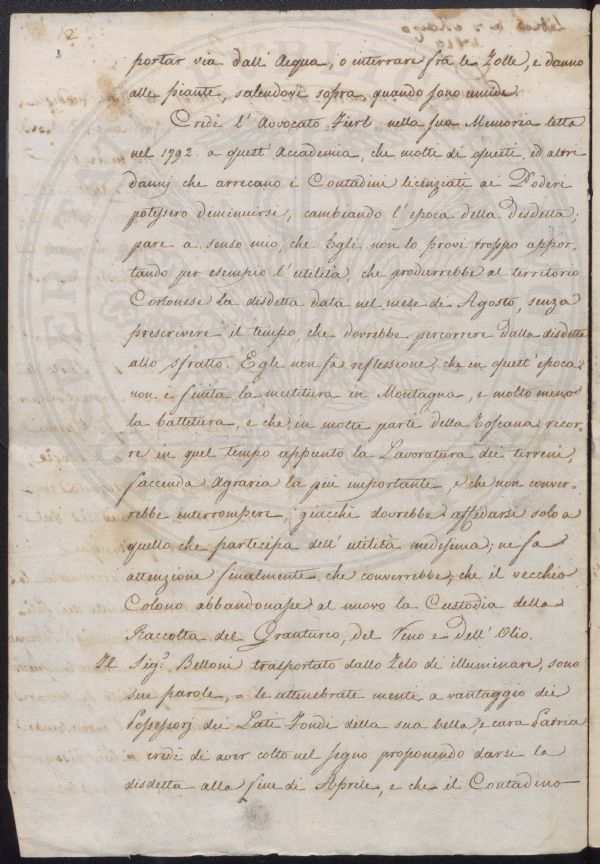 12
portar via dall' Acqua, o interrare fra le Zolle, e danno
alle piante, salendovi sopra, quando sono umide.
Credè l' Avvocato Fierli nella sua Memoria letta
nel 1792. a quest' Accademia, che molti di questi, ed altri
dannj che arrecano i Contadini licenziati ai Poderi
potessero diminuirsi, cambiando l' epoca della Disdetta;
pare a senso mio, che Egli non lo provi troppo appor-
tando per esempio l' utilità, che produrrebbe al territorio
Cortonese la disdetta data nel mese di Agosto, senza
prescrivere il tempo, che dovrebbe percorrere dalla disdetta
allo sfratto. Egli non fa reflessione, che in quest' epoca
non è finita la mietitura in Montagna, e molto meno
la battitura, e che in molte parti della Toscana ricor-
re in quel tempo appunto la Lavoratura dei terreni,
faccenda Agraria la più importante, e che non conver-
rebbe interrompere, giacchè dovrebbe affidarsi solo a
quello che partecipa dell' utilità medesima; nè fa
attenzione finalmente, che converrebbe, che il vecchio
Colono abbandonasse al nuovo la Custodia della
Raccolta del Granturco, del Vino e dell' Olio.
Il Sig.r Belloni trasportato dallo Zelo di illuminare, sono
sue parole, = le attenebrate menti a vantaggio dei
Possessorj dei Lati Fondi della sua bella, e cara Patria
= credè di aver colto nel segno proponendo darsi la
disdetta alla fine di Aprile, e che il Contadino